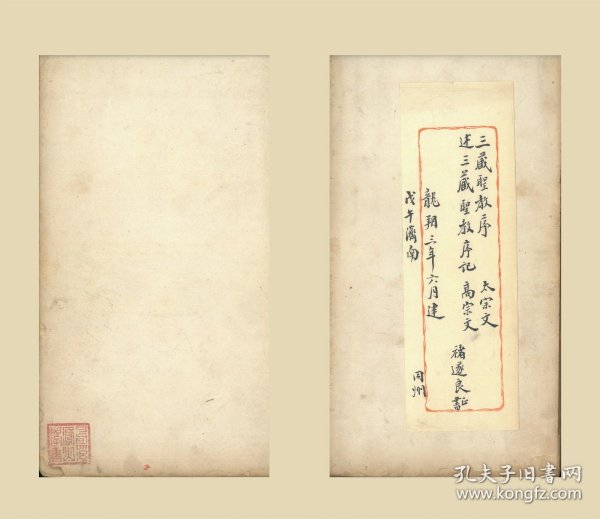 三藏聖教序 太宗文
述三藏聖教序記 高宗文
褚遂良正書
龍朔三年六月建
同州
戊午濟南
孔夫子旧书网
www.kongfz.com